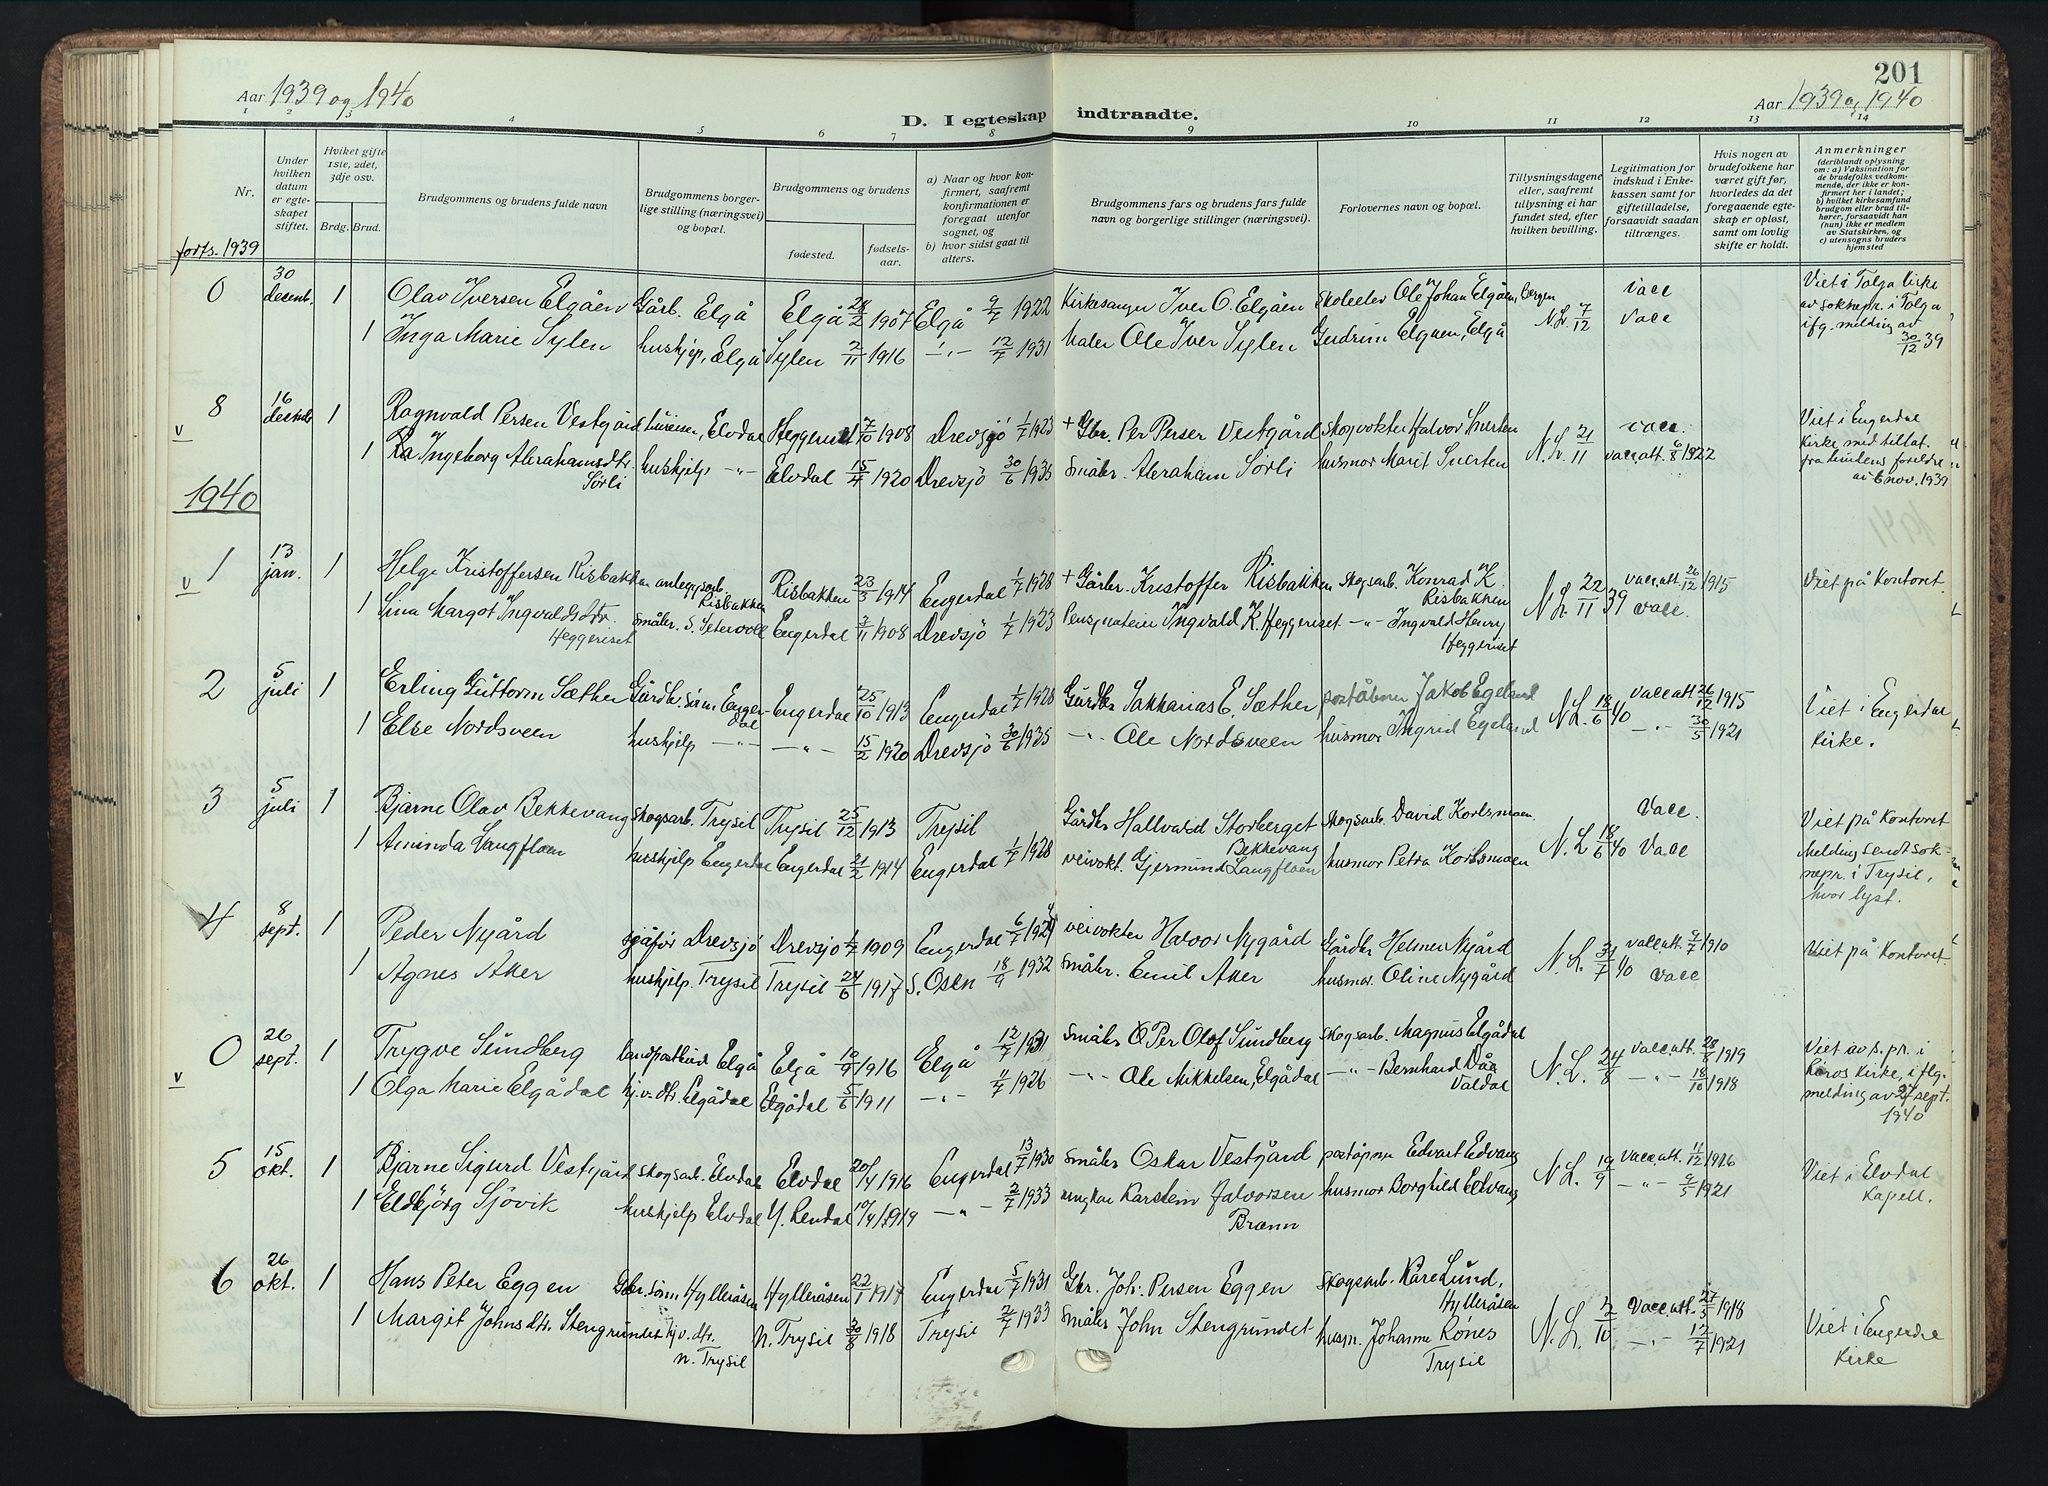 201
Aar 1939 og 1940
D. I egteskap indtraadte.
Aar 1939 og 1940
1 2 3 4 5 6 7 8 9 10 11 12 13 14
Nr.
Under hvilken datum er egteskapet stiftet.
Hviket gifte 1ste, 2det, 3dje osv.
Brdg. Brud.
Brudgommens og brudens fulde navn
Brudgommens borgerlige stilling (næringsvei) og bopæl.
Brudgommens og brudens
fødested.
fødselsaar.
a) Naar og hvor konfirmert, saafremt konfirmationen er foregaat utenfor sognet, og
b) hvor sidst gaat til alters.
Brudgommens fars og brudens fars fulde navn og borgerlige stillinger (næringsvei).
Forlovernes navn og bopæl.
Tillysningsdagene eller, saafremt tillysning ei har fundet sted, efter hvilken bevilling.
Legitimation for indskud i Enkekassen samt for giftetilladelse, forsaavidt saadan tiltrænges.
Hvis nogen av brudefolkene har været gift før, hvorledes da det foregaaende egteskap er opløst, samt om lovlig skifte er holdt.
Anmerkninger
(deriblandt oplysning om: a) Vaksination for de brudefolks vedkommende, der ikke er konfirmert her i landet; b) hvilket kirkesamfund brudgom eller brud tilhører, forsaavidt han (hun) ikke er medlem av Statskirken, og c) utensogns bruders hjemsted
forts. 1939
0 30 decemb. 1 Olav Iversen Elgåen Gårb. Elgå Elgå 1907 Elgå 9/7 1922 Kirkesanger Iver O. Elgåen Skoleelev Ole Johan Elgåen, Bergen N.L. 7/12 vacc Viet i Tolga kirke av soknepr. i Tolga ifg. melding av 30/12 39
1 Inga Marie Sylen hushjelp, Elgå Sylen 2/11 1916 -"- 12/7 1931 Maler Ole Iver Sylen Gudrun Elgåen, Elgå vacc
v 8 16 1 Ragnvald Persen Vestgård Elvdal 7/10 1908 Drevsjø 1/7 1923 + Gbr. Per Perser Vestgård skogvokter Halvor Snerten N.L. 21/11 vacc. Viet i Engerdal Kirke, med tillat. fra brudens foreldre av 6 nov. 1939
1 Ingeborg Abrahamsdtr. Sørli hushjelp -"- Elvdal 15/4 1920 Drevsjø 30/6 1935 Småbr. Abraham Sørli husmor Marit Snerten vacc. att. 1922
1940
v 1 13 jan. 1 Helge Kristoffersen Risbakken anleggsarb. Risbakken Risbakken 23/3 1914 Engerdal 1/7 1928 + Gårbr. Kristoffer Risbakken skogsarb. Konrad K. Risbakken N.L. 22/11 39 vacc att. 26/12 1915 Viet på Kontoret.
1 Lina Margot Ingvaldsdtr. Heggeriset småbr. S. Setervoll Engerdal 1908 Drevsjø 1/7 1923 Ingvald K. Heggeriset -"- Ingvald Henry Heggeriset vacc.
2 5 juli 1 Erling Guttorm Sæther Gårdbr. sønn Engerdal Engerdal 25/10 1913 Engerdal 1/7 1928 Gårdbr Sakkarias E. Sæther poståbner Jakob Egeland N.L. 18/6 40 vacc att 26/12 1915 Viet i Engerdal Kirke.
1 Else Nordsveen hushjelp -"- -"- 15/2 1920 Drevsjø 30/6 1935 -"- Ole Nordsveen husmor Ingrid Egeland -"- 30/5 1921
3 5 juli 1 Bjarne Olav Bekkevang skogsarb. Trysil Trysil 25/12 1913 Trysil Gårdbr Hallvard Storberget Bekkevang skogsarb. David Korbsmoen N.L 18/6 40 vacc. Viet på Kontoret Melding sendt soknepr. i Trysil, hvor lyst.
1 Aminda Langfloen hushjelp Engerdal Engerdal 21/2 1914 Engerdal 1/7 1928 veivokt. Gjermund Langfloen husmor Petra Korbsmoen vacc
4 8 sept. 1 Peder Nygård sjåfør Drevsjø Drevsjø 1909 Engerdal 6/7 veivokter Halvor Nygård Gårdbr Helmer Nygård N.L. 31/7 40 vacc. att. 1910 Viet på Kontoret
1 Agnes Aker hushjelp. Trysil Trysil 24/6 1917 S. Osen 18/9 1932 småbr. Emil Aker husmor. Oline Nygård vacc
v 0 26 sept. 1 Trygve Sundberg landpostbud Elgå Elgå 10/9 1916 Elgå 12/7 1931 småbr Per Olof Sundberg skogsarb. Magnus Elgådal N.L. 24/8 vacc att. 1919 Viet av s.pr. i Røros Kirke, iflg. melding av 27 sept. 1940
1 Olga Marie Elgådal hj.v. dtr. Elgådal Elgådal 5/6 1911 -"- 1926 -"- Ole Mikkelsen, Elgådal -"- Bernhard Dåa Valdal -"- 18/10 1918
5 15 okt. 1 Bjarne Sigurd Vestgård skogsarb. Elvdal Elvdal 20/4 1916 Engerdal 13/7 1930 småbr Oskar Vestgård poståpner Edvart Edvang N.L. 19/9 vacc. att. 11/12 1916 Viet i Elvdal Kapell.
1 Eldbjørg Sjøvik hushjelp Elvdal Y. Rendal 1919 -"- 2/7 1933 Karstein Halvorsen Brænn husmor Borghild Edvang -"- 9/5 1921
6 26 okt. 1 Hans Peter Eggen Gbr. sønn Hylleråsen Hylleråsen 22/1 1917 Engerdal 5/7 1931 Gbr. Joh. Persen Eggen skogsarb. Kåre Lund, Hylleråsen N.L. 2/10 vacc. att. 27/5 1918 Viet i Engerdal Kirke
1 Margit Johnsdtr. Stengrundet hj.v. dtr. n. Trysil n. Trysil 30/8 1918 Trysil 2/7 1933 småbr John Stengrundet husm. Johanne Rønes Trysil -"- 12/7 1921